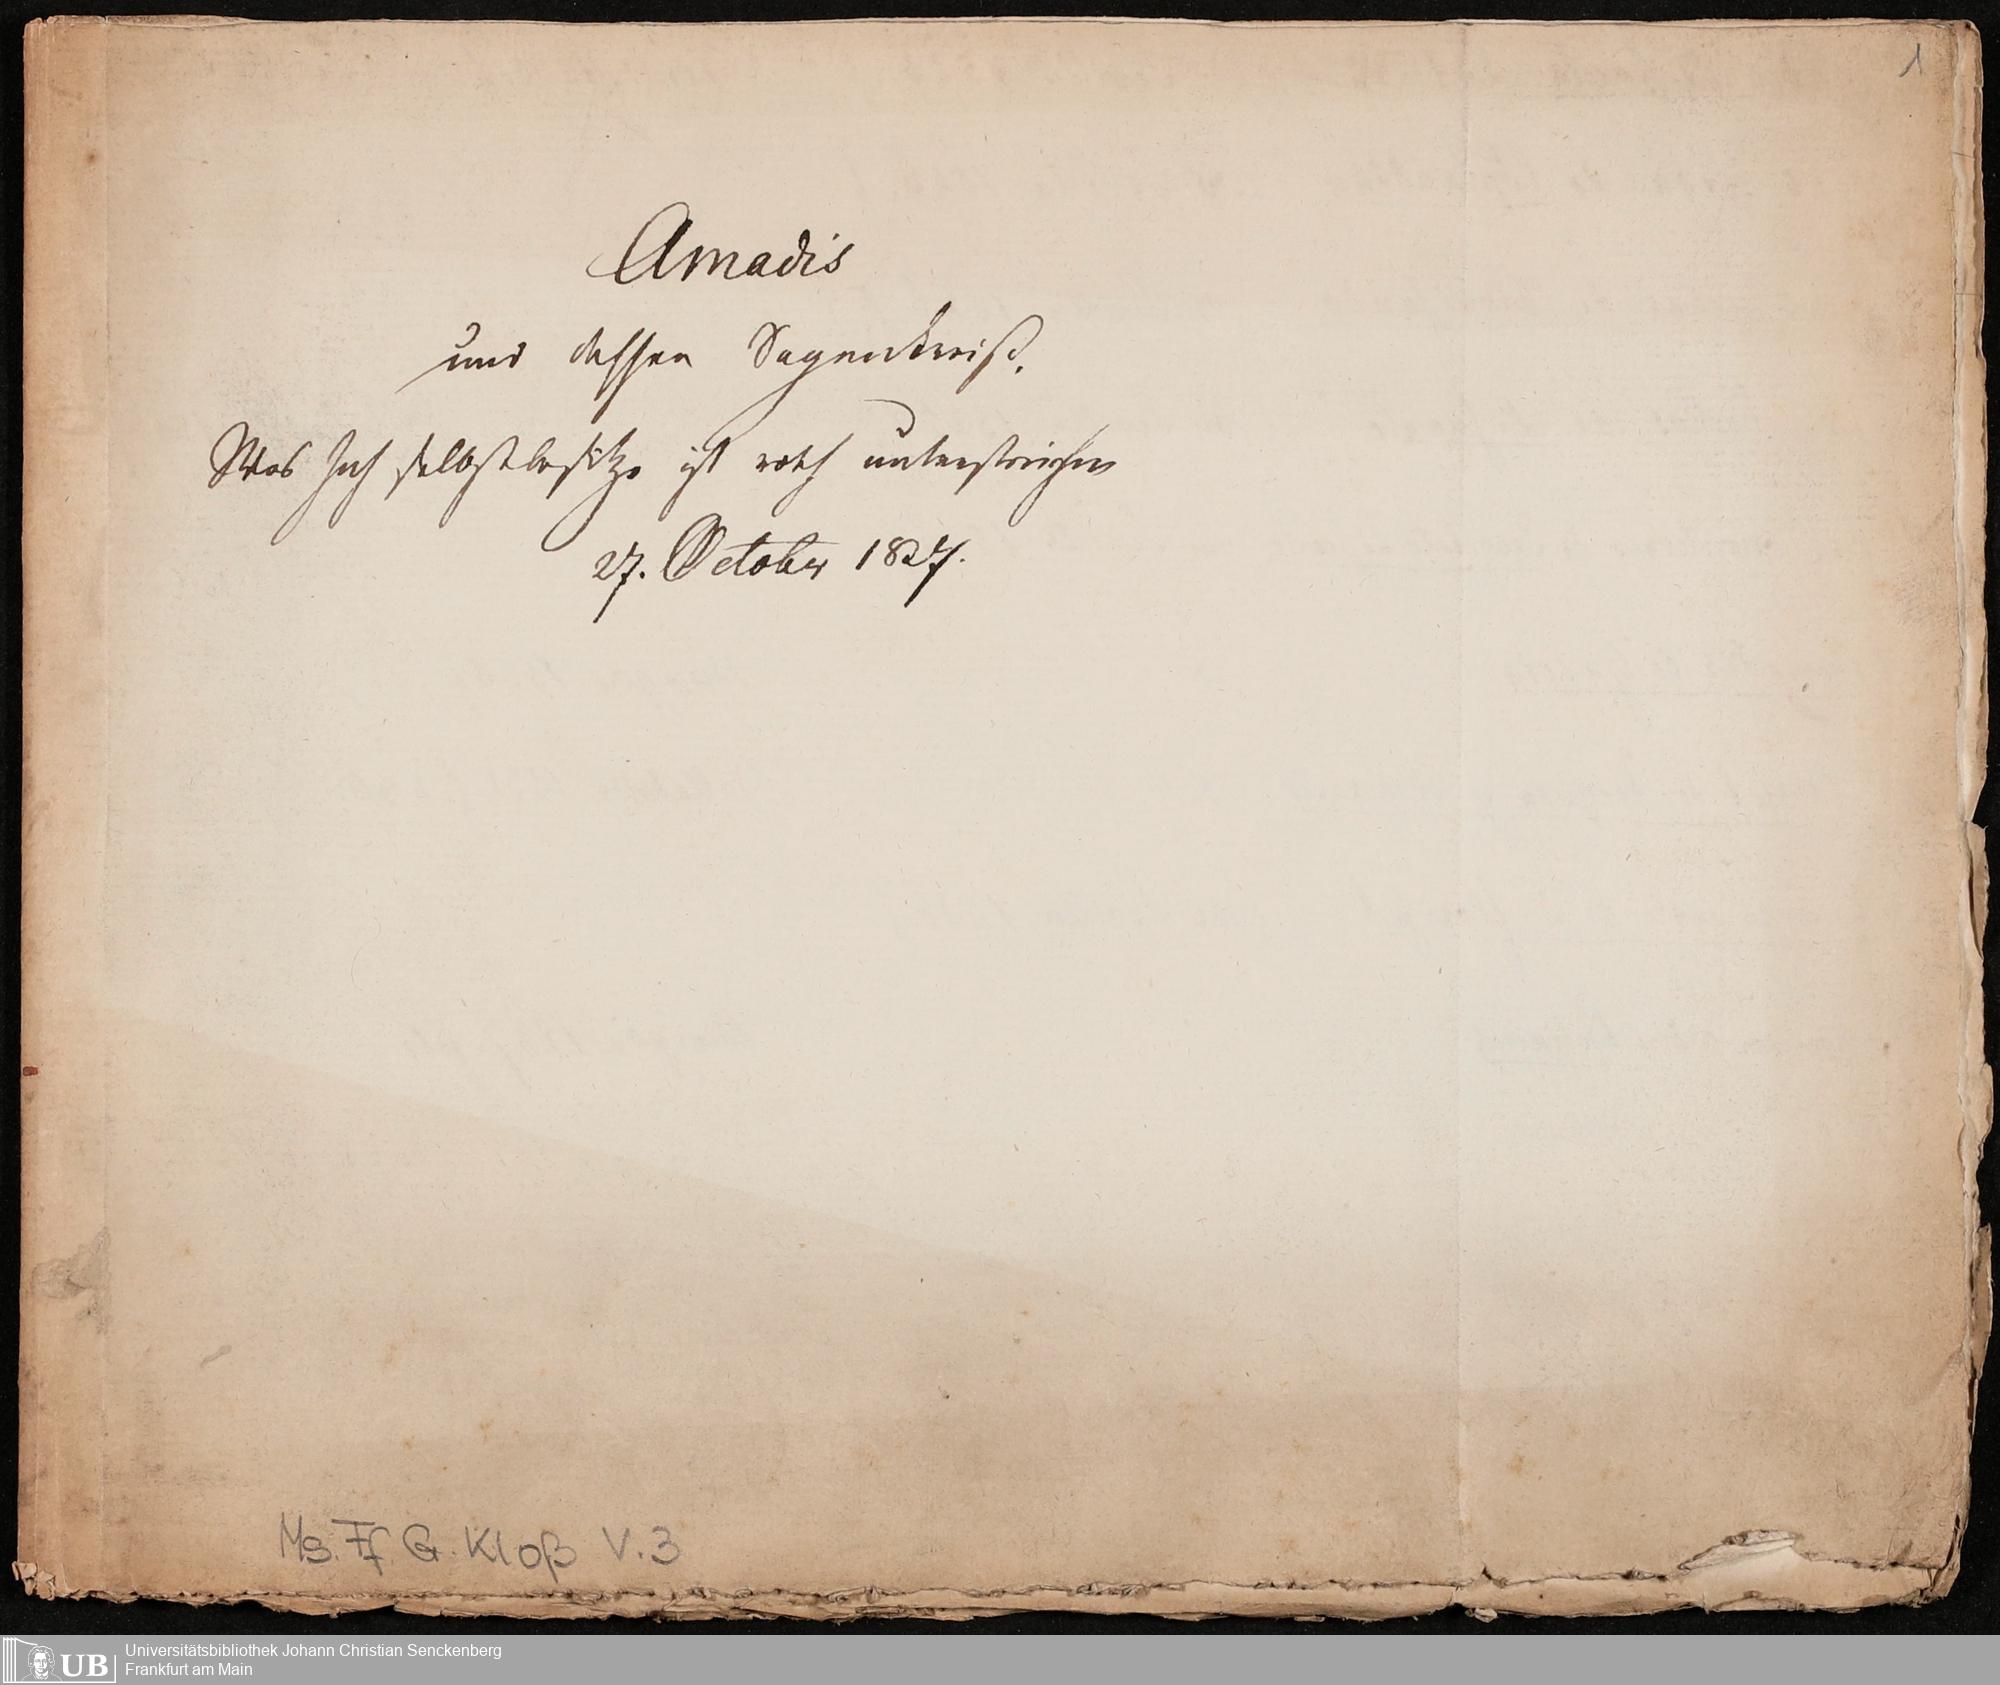 1
Amadis
und dessen Sagenkreiß.
Was Ich selbst besitze ist roth unterstrichen
27. October 1827.
Ms. Ff. G. Kloß V. 3
UB
Universitätsbibliothek Johann Christian Senckenberg
Frankfurt am Main